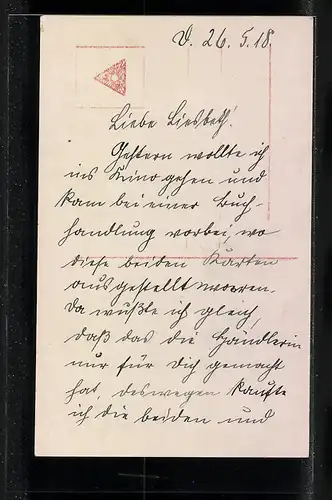 D. 26. 5. 18.
Liebe Liesbeth!
Gestern wollte ich
ins Kino gehen und
kam bei einer Buch-
handlung vorbei, wo
diese beiden Karten
ausgestellt waren.
Da wußte ich gleich,
daß das die Händlerin
nur für Dich gemacht
hat, deswegen kaufte
ich die beiden und